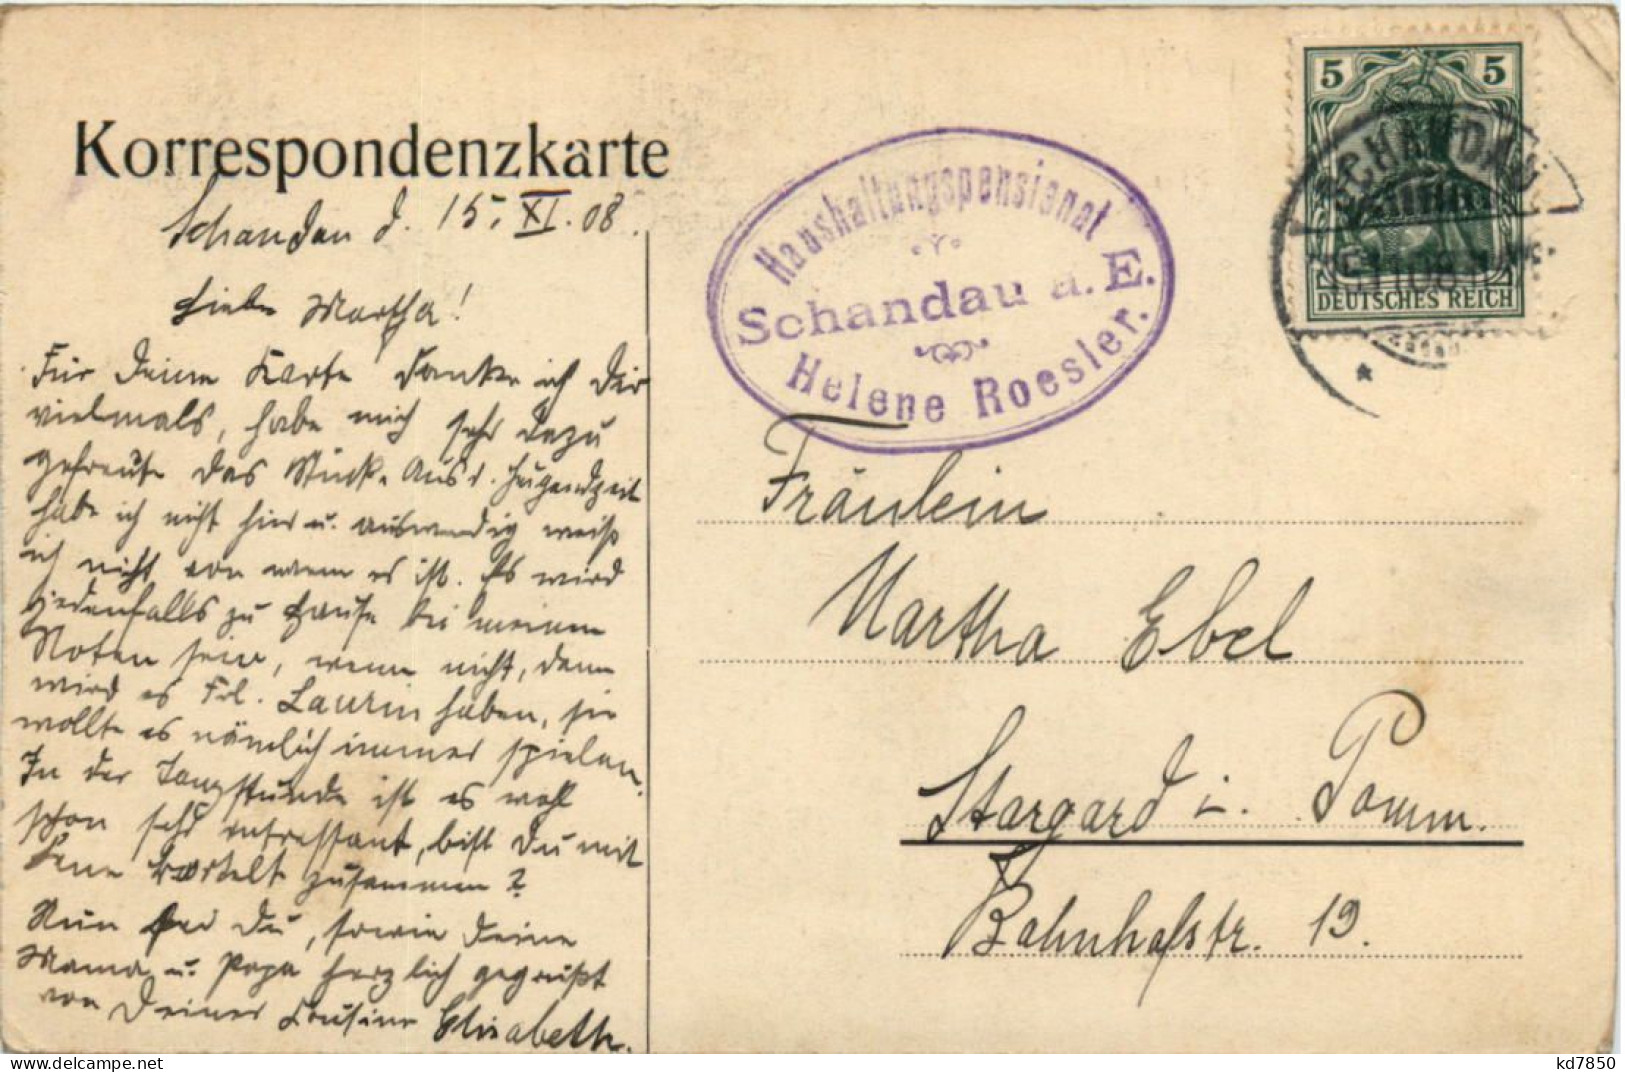 Korrespondenzkarte
Schandau d. 15. XI. 08.
Liebe Martha!
Für Deine Karte danke ich Dir
vielmals, habe mich sehr dazu
gefreut. Das Stück "Aus d. Jugendzeit
habe ich nicht hier u. auswendig weiß
ich nicht von wem es ist. Es wird
jedenfalls zu Hause bei meinen
Noten sein, wenn nicht, dann
wird es Frl. Laurin haben, sie
wollte es nämlich immer spielen.
In der Tanzstunde ist es wohl
schon sehr interessant, bist Du mit
zusammen?
Nun sei Du, sowie Deine
Mama u. Papa herzlich gegrüßt
von Deiner Cousine Elisabeth.
Haushaltungspensionat
Schandau a. E.
Helene Roesler.
5 5
SCHANDAU
DEUTSCHES REICH
Fräulein
Martha Ebel
Stargard i. Pomm.
Bahnhofstr. 19.
kd7850